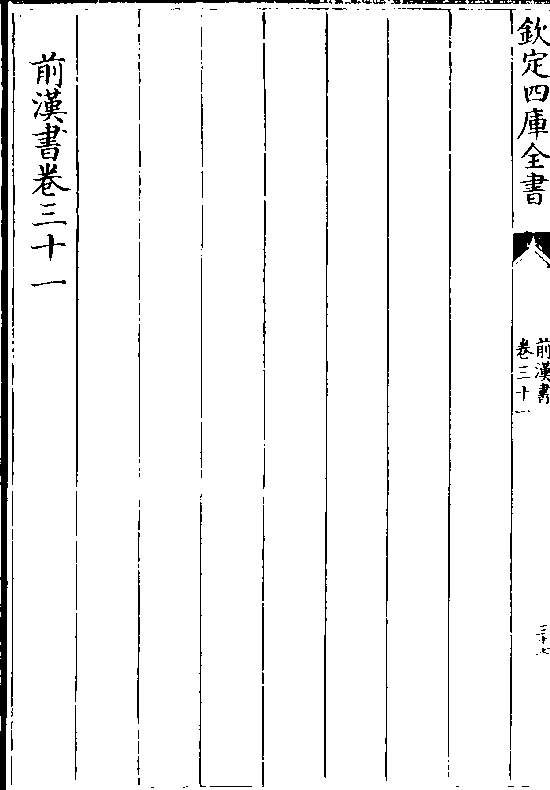 欽定四庫全書
前漢書
卷三十一
三十七
前漢書卷三十一